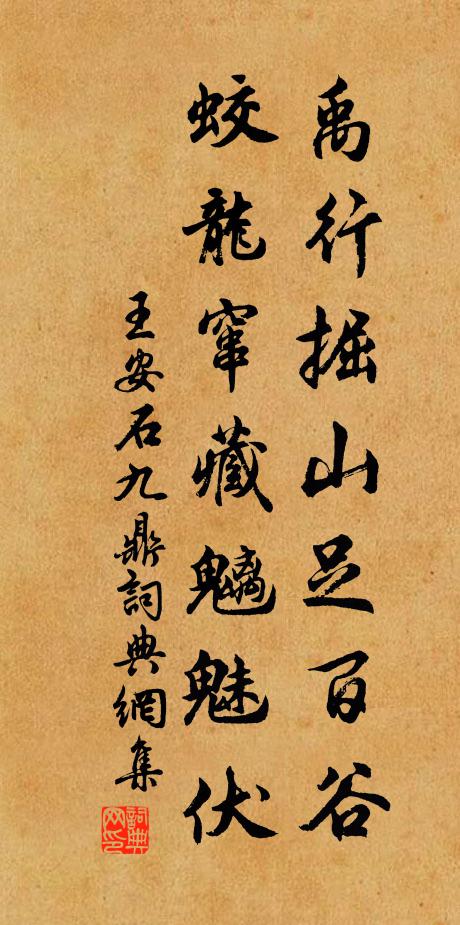 禹行掘山足百谷
蛟龍窜藏魑魅伏
王安石九鼎詞典網集
詞典网印